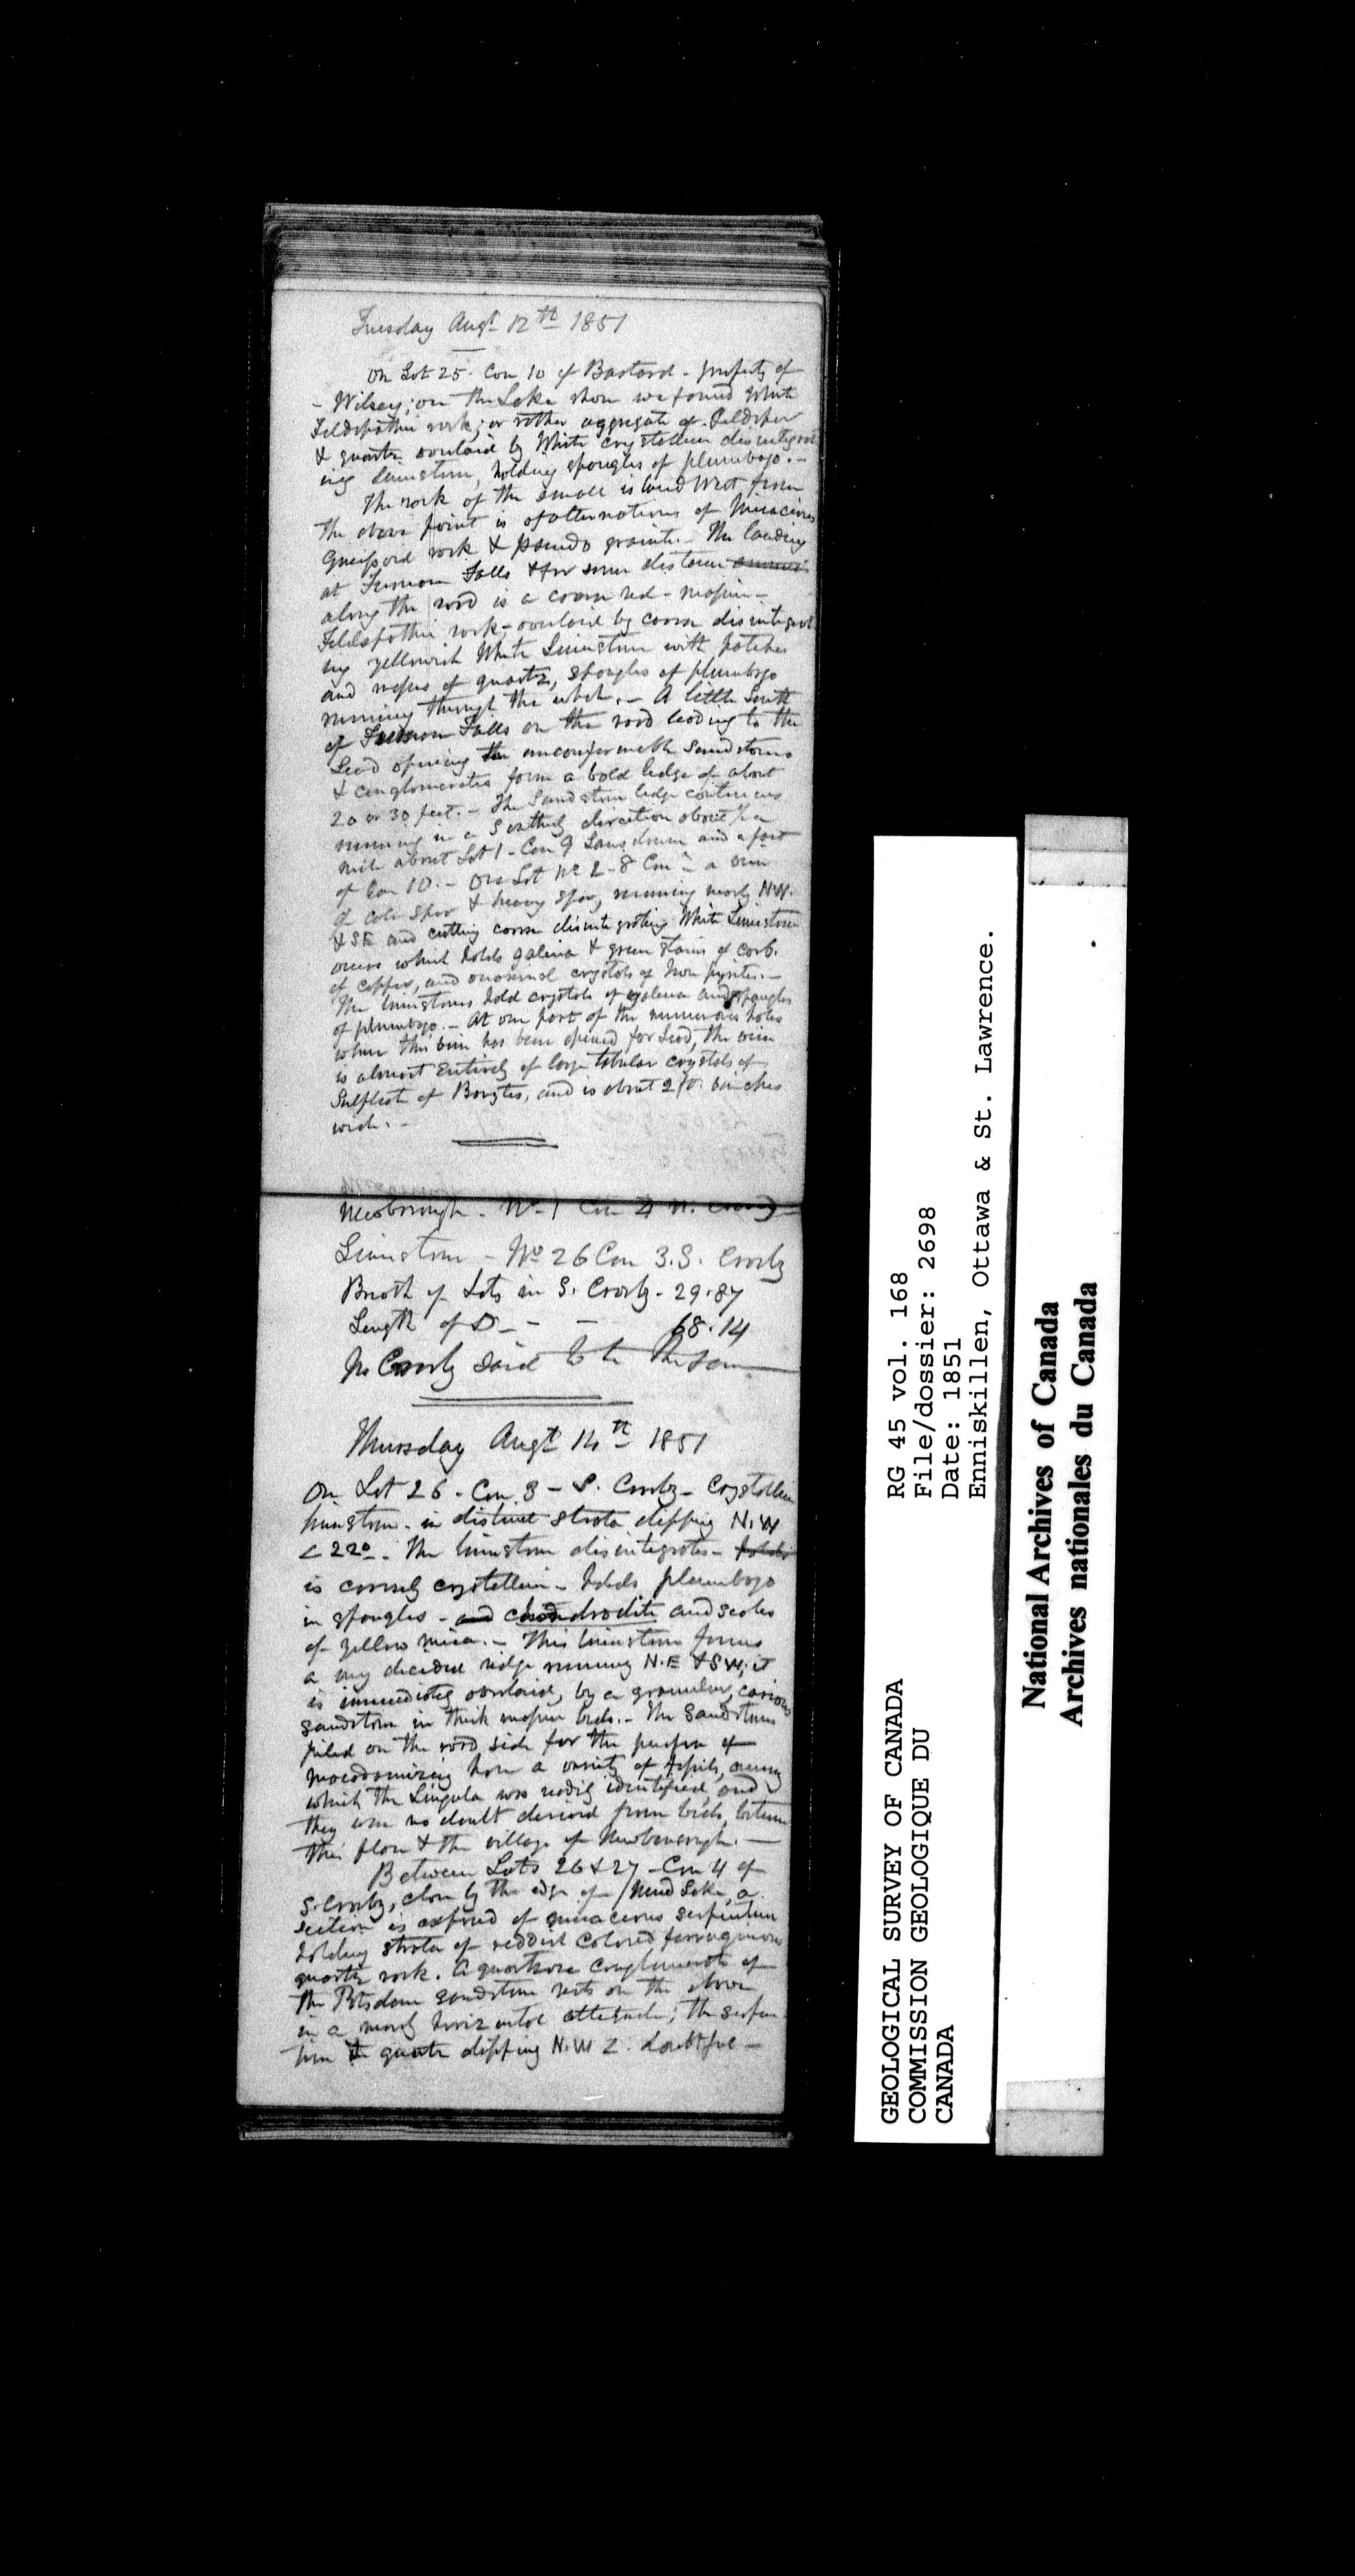 Tuesday Augt 12th 1851
On Lot 25. Con 10 of Bastard - property of
- Wilsey; on the Lake shore we found White
Feldspathic rock, or rather aggregate of Feldspar
& quartz overlaid by White crystalline disintegrat
ing limestone, holding spangles of plumbago. -
The rock of the small island West from
the above point is of alternations of Micaceous
Gneissoid rock & pseudo granite. The landing
at Furnace Falls & for some distance
along the road is a coarse red - massive -
Feldspathic rock - overlaid by coarse disintegrat
ing yellowish White Limestone with patches
and masses of quartz, spangles of plumbago
running through the whole. - A little South
of Furnace Falls on the road leading to the
Lead opening the unconformable Sandstones
& conglomerates form a bold ledge of about
20 or 30 feet. - The Sandstone ledge continues
running in a Southerly direction about 1/2 a
mile about Lot 1 - Con 9 Lansdowne and a part
of Con 10. - On Lot No 2 - 8 Con - a vein
of calc spar & heavy spar, running nearly N.W.
& SE and cutting coarse disintegrating White Limestone
occurs which holds galena & green stains of carb.
of copper, and occasional crystals of Iron pyrites. -
The limestones hold crystals of galena and spangles
of plumbago. - At one part of the numerous holes
where this vein has been opened for Lead, the vein
is almost entirely of large tabular crystals of
Sulphate of Barytes, and is about 2 ft. inches
wide. -
Newborough - No 1 Con 4 N. Crosby
Limestone - No 26 Con 3. S. Crosby
Breadth of Lots in S. Crosby - 29.87
Length of Do - - - 68.14
N Crosby said to be the same
Thursday Augt 14th 1851
On Lot 26 - Con 3 - S. Crosby - Crystalline
limestone - in distinct strata dipping N.W
< 22o. The limestone disintegrates -
is coarsely crystalline - holds plumbago
in spangles - and chondrodite and scales
of yellow mica. - This limestone forms
a very decided ridge running N.E & S.W; it
is immediately overlaid by a granular, carious
sandstone in thick massive beds. - The Sandstones
piled on the road side for the purpose of
macadamizing have a variety of fossils, among
which the Lingula was readily identified and
they were no doubt derived from beds between
this place & the village of Newborough. -
Between Lots 26 & 27 - Con 4 of
S. Crosby, close by the edge of Mud Lake, a
section is exposed of micaceous serpentine
holding strata of reddish colored ferruginous
quartz rock. A quartzose conglomerate of
the Potsdam sandstone rests on the above
in a nearly horizontal attitude; the serpen-
tine & quartz dipping N.W < doubtful -
GEOLOGICAL SURVEY OF CANADA
COMMISSION GEOLOGIQUE DU
CANADA
RG 45 vol. 168
File/dossier: 2698
Date: 1851
Enniskillen, Ottawa & St. Lawrence.
National Archives of Canada
Archives nationales du Canada